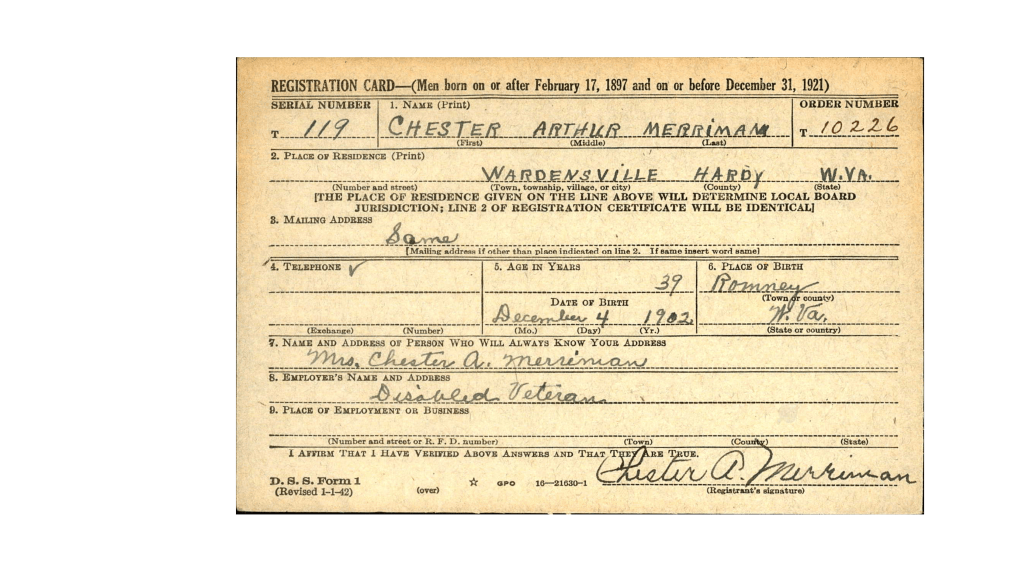 REGISTRATION CARD—(Men born on or after February 17, 1897 and on or before December 31, 1921)
SERIAL NUMBER 1. NAME (Print) ORDER NUMBER
T 119 CHESTER ARTHUR MERRIMAN T 10226
(First) (Middle) (Last)
2. PLACE OF RESIDENCE (Print)
WARDENSVILLE HARDY W.VA.
(Number and street) (Town, township, village, or city) (County) (State)
[THE PLACE OF RESIDENCE GIVEN ON THE LINE ABOVE WILL DETERMINE LOCAL BOARD
JURISDICTION; LINE 2 OF REGISTRATION CERTIFICATE WILL BE IDENTICAL]
3. MAILING ADDRESS
Same
[Mailing address if other than place indicated on line 2. If same insert word same]
4. TELEPHONE ✓ 5. AGE IN YEARS 6. PLACE OF BIRTH
39 Romney
DATE OF BIRTH (Town or county)
December 4 1902 W. Va.
(Exchange) (Number) (Mo.) (Day) (Yr.) (State or country)
7. NAME AND ADDRESS OF PERSON WHO WILL ALWAYS KNOW YOUR ADDRESS
Mrs. Chester A. Merriman
8. EMPLOYER'S NAME AND ADDRESS
Disabled Veteran
9. PLACE OF EMPLOYMENT OR BUSINESS
(Number and street or R. F. D. number) (Town) (County) (State)
I AFFIRM THAT I HAVE VERIFIED ABOVE ANSWERS AND THAT THEY ARE TRUE.
Chester A. Merriman
D. S. S. Form 1
(Revised 1-1-42) (over) ☆ GPO 16—21630-1 (Registrant's signature)